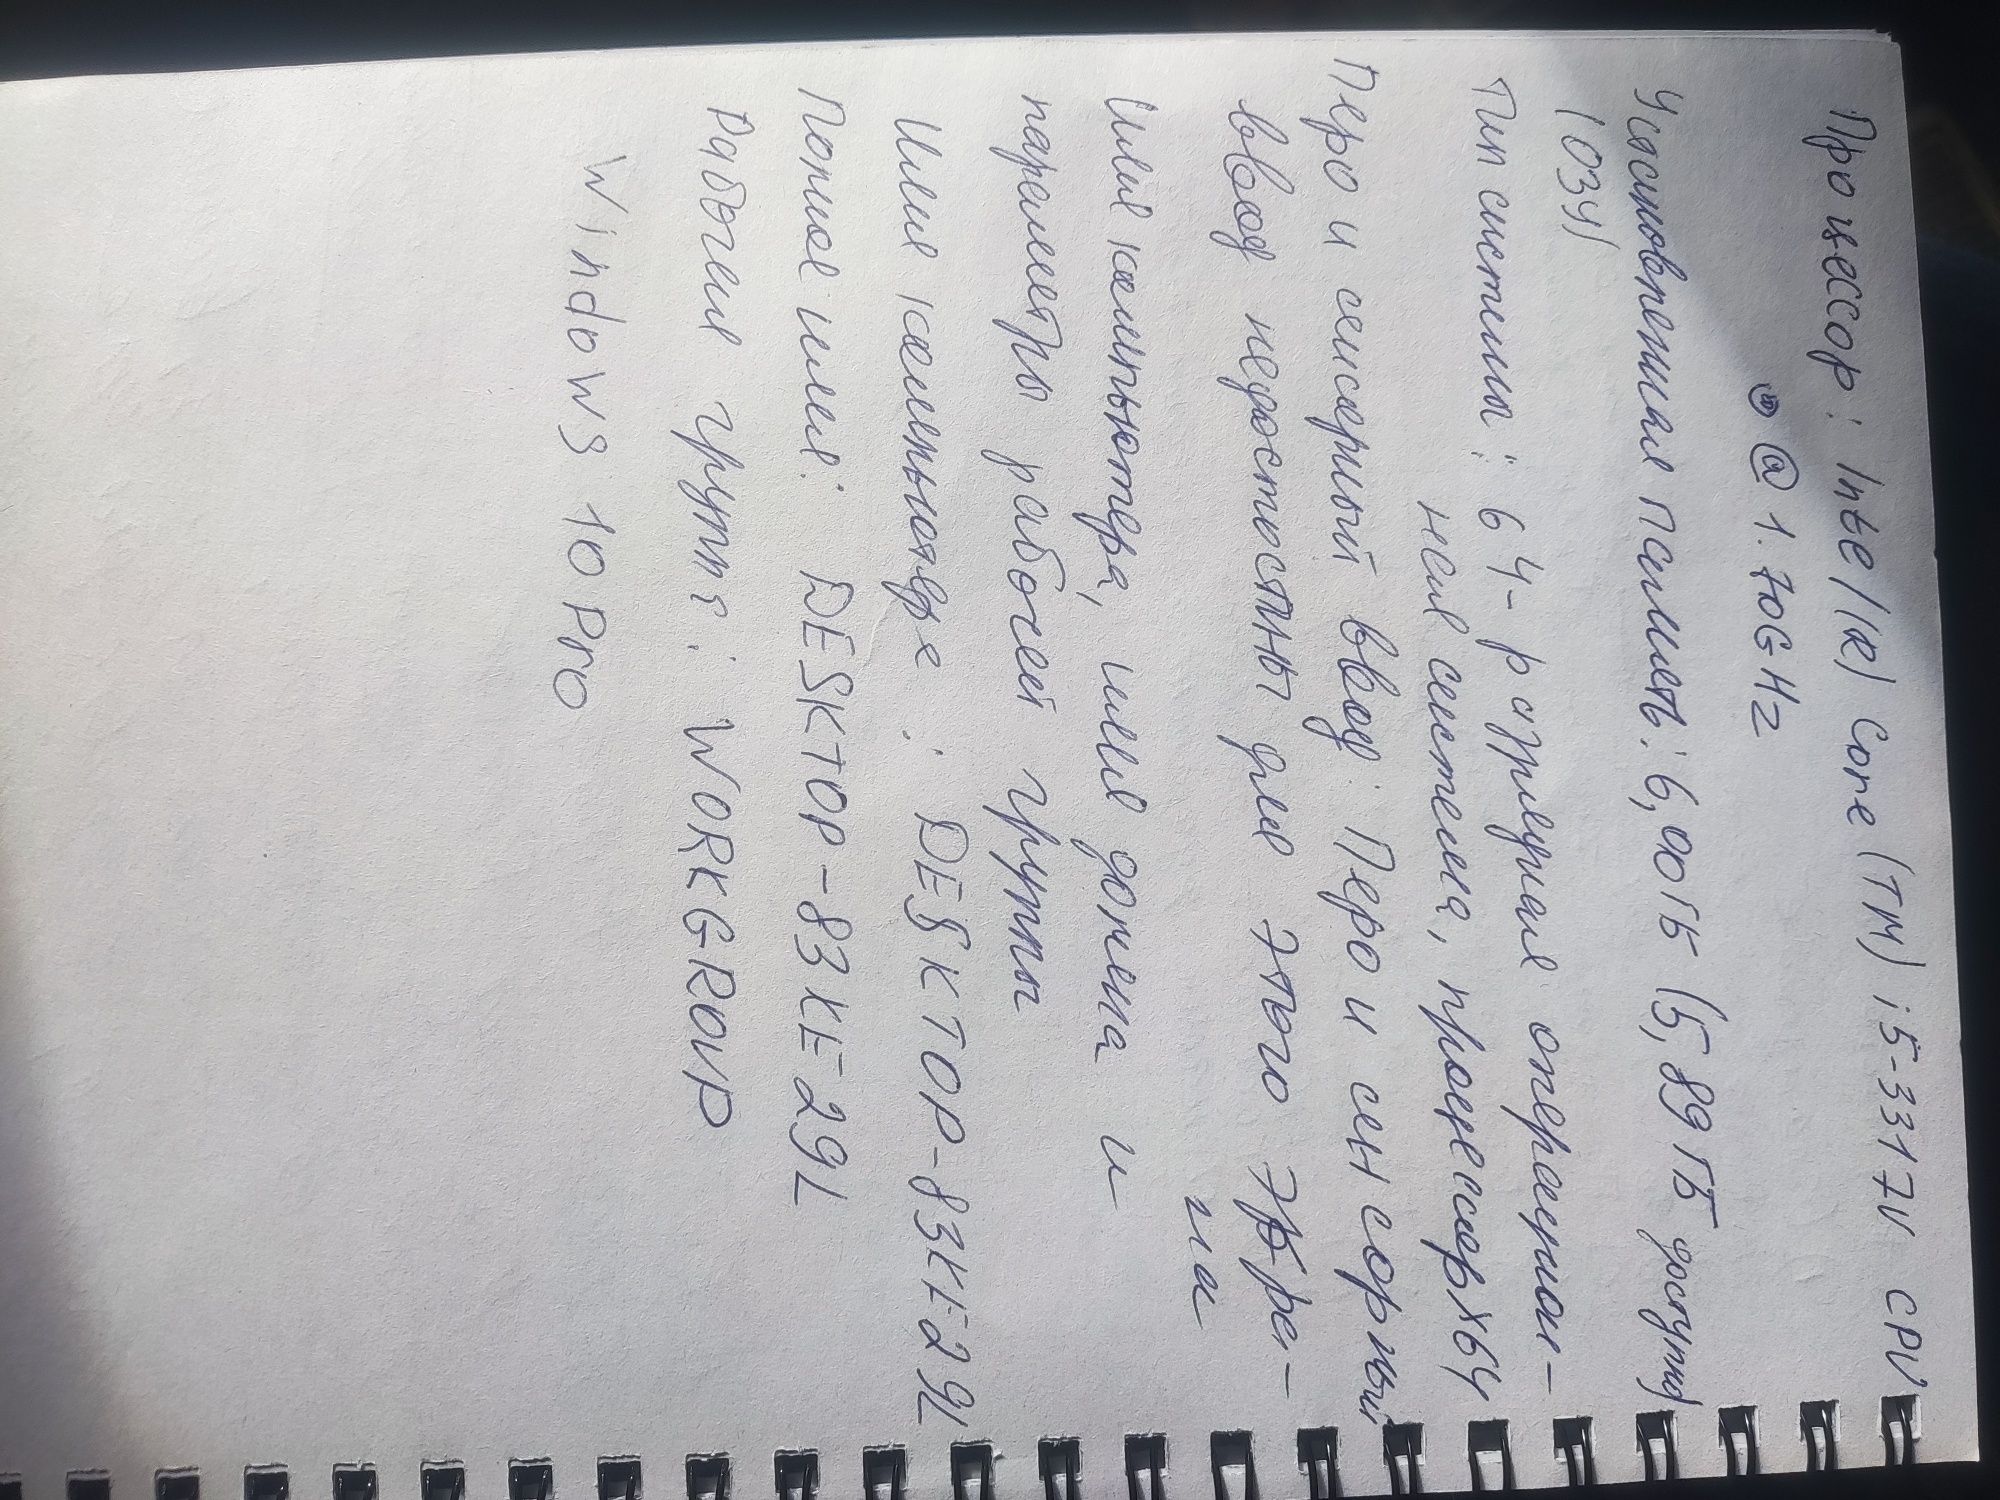 Процессор: Intel(R) Core (TM) i5-3317U CPU
@ 1.70GHz
Установленная память: 6,00ГБ (5,89 ГБ доступно)
(ОЗУ)
Тип системы: 64-разрядная операцион-
ная система, процессор х64
Перо и сенсорный ввод: Перо и сенсорный
ввод недоступны для этого экра-
на
Имя компьютера, имя домена и
параметры рабочей группы
Имя компьютера: DESKTOP-83KE29L
Полное имя: DESKTOP-83KE29L
Рабочая группа: WORKGROUP
Windows 10 Pro